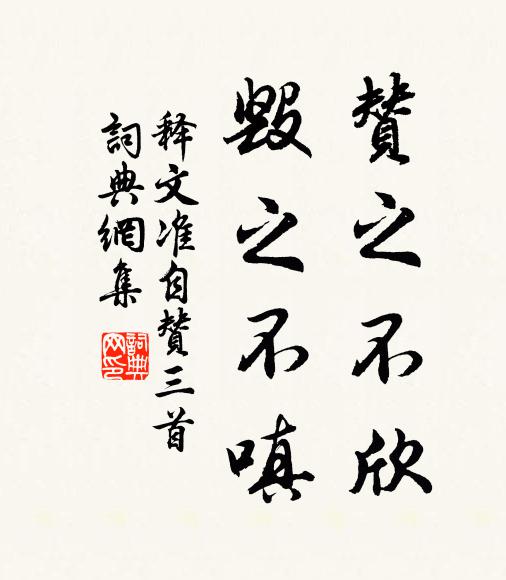 赞之不欣
毁之不嗔
释文准自赞三首
詞典網集
詞典网印